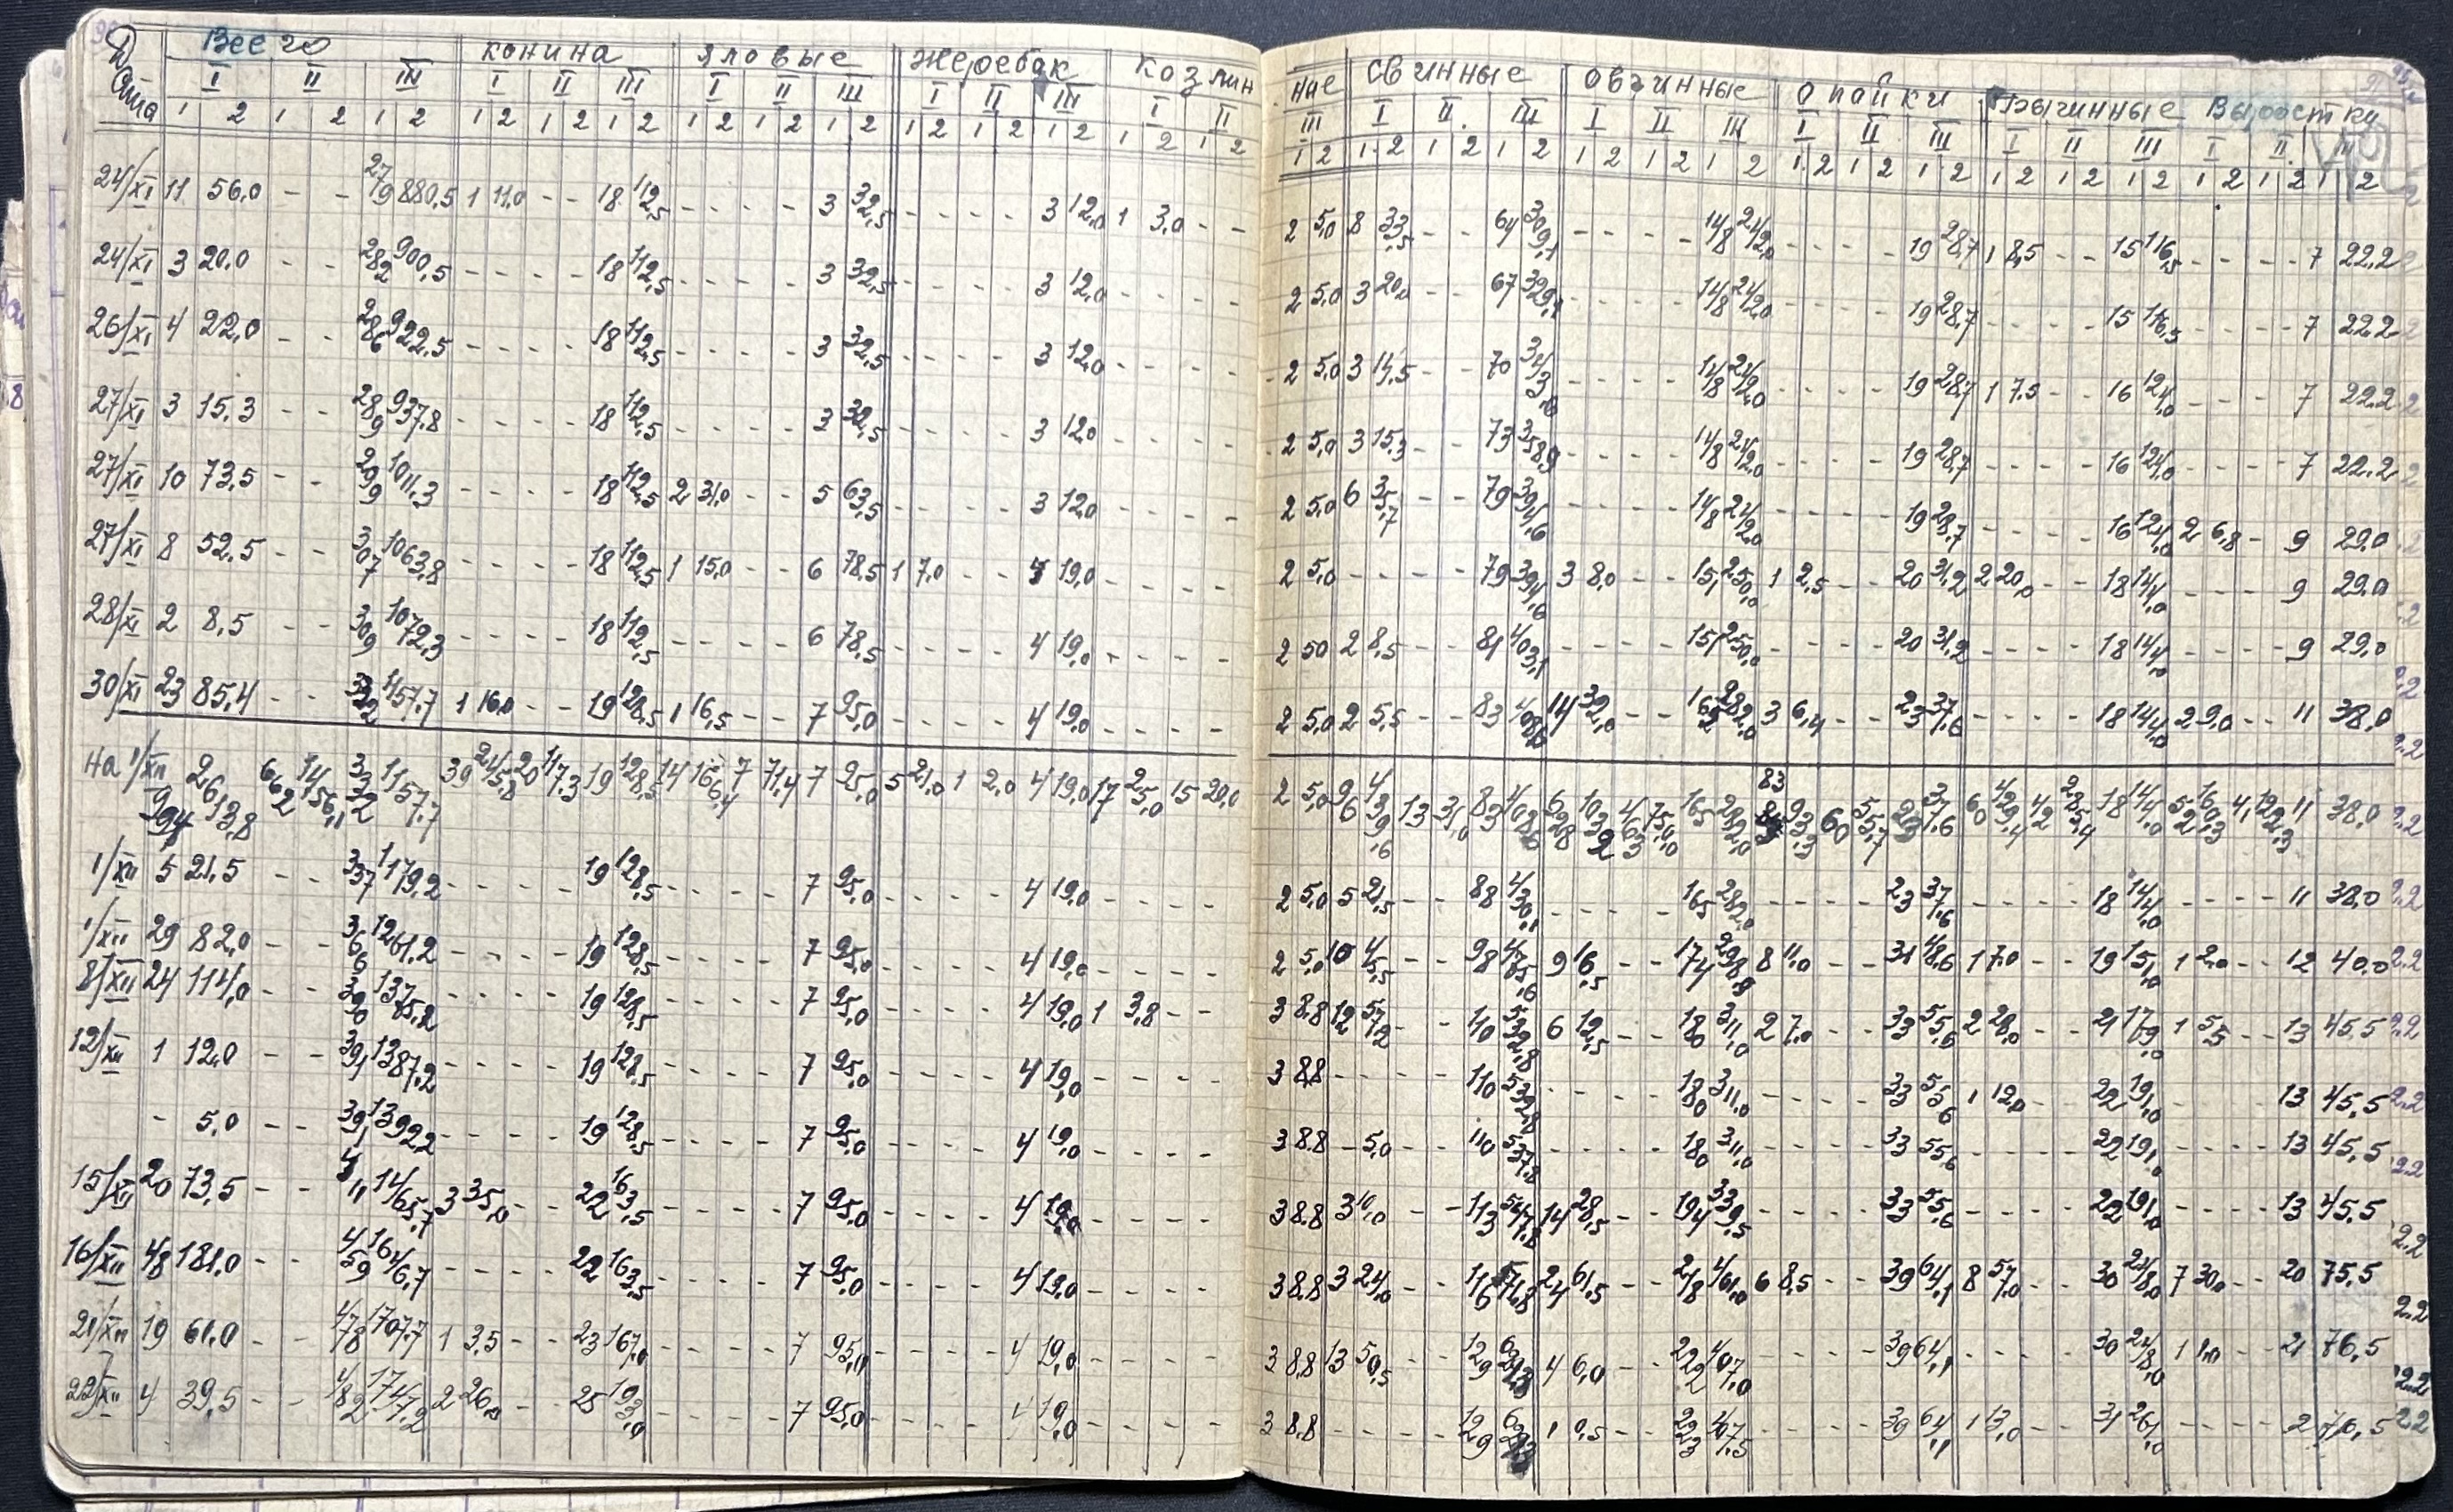 Дата Всего конина яловые жеребок козлин
I II III I II III I II III I II III I II
1 2 1 2 1 2 1 2 1 2 1 2 1 2 1 2 1 2 1 2 1 2 1 2 1 2 1 2
24/XI 11 56,0 - - 279 880,5 1 11,0 - - 18 112,5 - - - - 3 32,5 - - - - 3 12,0 1 3,0 - -
24/XI 3 20,0 - - 282 900,5 - - - - 18 112,5 - - - - 3 32,5 - - - - 3 12,0 - - - -
26/XI 4 22,0 - - 286 922,5 - - - - 18 112,5 - - - - 3 32,5 - - - - 3 12,0 - - - -
27/XI 3 15,3 - - 289 937,8 - - - - 18 112,5 - - - - 3 32,5 - - - - 3 12,0 - - - -
27/XI 10 73,5 - - 299 1011,3 - - - - 18 112,5 2 31,0 - - 5 63,5 - - - - 3 12,0 - - - -
27/XI 8 52,5 - - 307 1063,8 - - - - 18 112,5 1 15,0 - - 6 78,5 1 7,0 - - 4 19,0 - - - -
28/XI 2 8,5 - - 309 1072,3 - - - - 18 112,5 - - - - 6 78,5 - - - - 4 19,0 - - - -
30/XI 23 85,4 - - 332 1157,7 1 16,0 - - 19 128,5 1 16,5 - - 7 95,0 - - - - 4 19,0 - - - -
На 1/XII 994 2613,8 662 1456,11 332 1157,7 39 245,8 20 117,3 19 128,5 14 166,4 7 71,4 7 95,0 5 21,0 1 2,0 4 19,0 17 25,0 15 20,0
1/XII 5 21,5 - - 337 1179,2 - - - - 19 128,5 - - - - 7 95,0 - - - - 4 19,0 - - - -
1/XII 29 82,0 - - 366 1261,2 - - - - 19 128,5 - - - - 7 95,0 - - - - 4 19,0 - - - -
8/XII 24 114,0 - - 390 1375,2 - - - - 19 128,5 - - - - 7 95,0 - - - - 4 19,0 1 3,8 - -
12/XII 1 12,0 - - 391 1387,2 - - - - 19 128,5 - - - - 7 95,0 - - - - 4 19,0 - - - -
- 5,0 - - 391 1392,2 - - - - 19 128,5 - - - - 7 95,0 - - - - 4 19,0 - - - -
15/XII 20 73,5 - - 411 1465,7 3 35,0 - - 22 163,5 - - - - 7 95,0 - - - - 4 19,0 - - - -
16/XII 48 181,0 - - 459 1646,7 - - - - 22 163,5 - - - - 7 95,0 - - - - 4 19,0 - - - -
21/XII 19 61,0 - - 478 1707,7 1 3,5 - - 23 167,0 - - - - 7 95,0 - - - - 4 19,0 - - - -
22/XII 4 39,5 - - 482 1747,2 2 26,0 - - 25 193,0 - - - - 7 95,0 - - - - 4 19,0 - - - -
ные свинные овчинные опойки бычинные Выростки
III I II III I II III I II III I II III I II III
1 2 1 2 1 2 1 2 1 2 1 2 1 2 1 2 1 2 1 2 1 2 1 2 1 2 1 2 1 2 1 2
2 5,0 8 33,5 64 309,1 - - - - 148 242,0 - - - - 19 28,7 1 8,5 15 116,5 - - - - 7 22,2
2 5,0 3 20,0 - - 67 329,1 - - - - 148 242,0 - - - - 19 28,7 - - - - 15 116,5 - - - - 7 22,2
2 5,0 3 14,5 - - 70 343,6 - - - - 148 242,0 - - - - 19 28,7 1 7,5 - - 16 124,0 - - - - 7 22,2
2 5,0 3 15,3 - - 73 358,9 - - - - 148 242,0 - - - - 19 28,7 - - - - 16 124,0 - - - - 7 22,2
2 5,0 6 35,7 - - 79 394,6 - - - - 148 242,0 - - - - 19 28,7 - - - - 16 124,0 2 6,8 - 9 29,0
2 5,0 - - - - 79 394,6 3 8,0 - - 151 250,0 1 2,5 - - 20 31,2 2 20,0 - - 18 144,0 - - - - 9 29,0
2 5,0 2 8,5 - - 81 403,1 - - - - 151 250,0 - - - - 20 31,2 - - - - 18 144,0 - - - - 9 29,0
2 5,0 2 5,5 - - 83 408,6 14 32,0 - - 165 282,0 3 6,4 - - 23 37,6 - - - - 18 144,0 2 9,0 - - 11 38,0
2 5,0 96 439,6 13 31,0 83 408,6 628 1032 463 750,0 165 282,0 83 93,3 60 55,7 23 37,6 60 429,4 42 285,4 18 144,0 52 160,3 41 122,3 11 38,0
2 5,0 5 21,5 - - 88 430,1 - - - - 165 282,0 - - - - 23 37,6 - - - - 18 144,0 - - - - 11 38,0
2 5,0 10 45,5 - - 98 475,6 9 16,5 - - 174 298,9 8 11,0 - - 31 48,6 1 7,0 - - 19 151,0 1 2,0 - - 12 40,0
3 8,8 12 57,2 - - 110 532,8 6 12,5 - - 180 311,0 2 7,0 - - 33 55,6 2 28,0 - - 21 179,0 1 5,5 - - 13 45,5
3 8,8 - - - - 110 532,8 - - - - 180 311,0 - - - - 33 55,6 1 12,0 - - 22 191,0 - - - - 13 45,5
3 8,8 - 5,0 - - 110 537,8 - - - - 180 311,0 - - - - 33 55,6 - - - - 22 191,0 - - - - 13 45,5
3 8,8 3 10,0 - - 113 547,8 14 28,5 - - 194 339,5 - - - - 33 55,6 - - - - 22 191,0 - - - - 13 45,5
3 8,8 3 24,0 - - 116 571,8 24 61,5 - - 218 401,0 6 8,5 - - 39 64,1 8 57,0 - - 30 248,0 7 30,0 - - 20 75,5
3 8,8 13 50,5 - - 129 4 6,0 - - 222 407,0 - - - - 39 64,1 - - - - 30 248,0 1 1,0 - - 21 76,5
3 8,8 - - - - 129 1 0,5 - - 223 407,5 - - - - 39 64,1 1 13,0 - - 31 261,0 - - - - 2 76,5